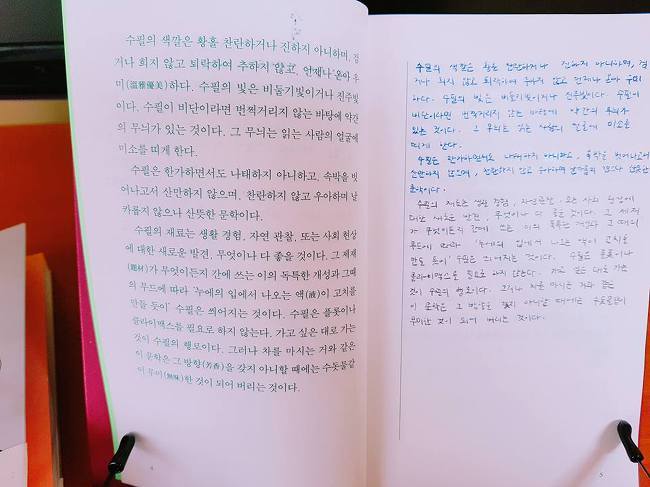 수필의 색깔은 황홀 찬란하거나 진하지 아니하며, 검
거나 희지 않고 퇴락하여 추하지 않고, 언제나 온아 우
미(溫雅優美)하다. 수필의 빛은 비둘기빛이거나 진주빛
이다. 수필이 비단이라면 번쩍거리지 않는 바탕에 약간
의 무늬가 있는 것이다. 그 무늬는 읽는 사람의 얼굴에
미소를 띠게 한다.
수필은 한가하면서도 나태하지 아니하고, 속박을 벗
어나고서 산만하지 않으며, 찬란하지 않고 우아하며 날
카롭지 않으나 산뜻한 문학이다.
수필의 재료는 생활 경험, 자연 관찰, 또는 사회 현상
에 대한 새로운 발견, 무엇이나 다 좋을 것이다. 그 제재
(題材)가 무엇이든지 간에 쓰는 이의 독특한 개성과 그때
의 무드에 따라 '누에의 입에서 나오는 액(液)이 고치를
만들 듯이' 수필은 씌어지는 것이다. 수필은 플롯이나
클라이맥스를 필요로 하지 않는다. 가고 싶은 대로 가는
것이 수필의 행로이다. 그러나 차를 마시는 거와 같은
이 문학은 그 방향(芳香)을 갖지 아니할 때에는 수돗물같
이 무미(無味)한 것이 되어 버리는 것이다.
수필의 색깔은 황홀 찬란하거나 진하지 아니하며, 검
거나 희지 않고 퇴락하여 추하지 않고 언제나 온아 우미
하다. 수필의 빛은 비둘기빛이거나 진주빛이다. 수필이
비단이라면 번쩍거리지 않는 바탕에 약간의 무늬가
있는 것이다. 그 무늬는 읽는 사람의 얼굴에 미소를
띠게 한다.
수필은 한가하면서도 나태하지 아니하고, 속박을 벗어나고서
산만하지 않으며, 찬란하지 않고 우아하며 날카롭지 않으나 산뜻한
문학이다.
수필의 재료는 생활 경험, 자연관찰, 또는 사회 현상에
대한 새로운 발견, 무엇이나 다 좋을 것이다. 그 제재
가 무엇이든지 간에 쓰는 이의 독특한 개성과 그 때의
무드에 따라 '누에의 입에서 나오는 액이 고치를
만들 듯이' 수필은 씌어지는 것이다. 수필은 플롯이나
클라이맥스를 필요로 하지 않는다. 가고 싶은 대로 가는
것이 수필의 행로이다. 그러나 차를 마시는 거와 같은
이 문학은 그 방향을 갖지 아니할 때에는 수돗물같이
무미한 것이 되어 버리는 것이다.
5